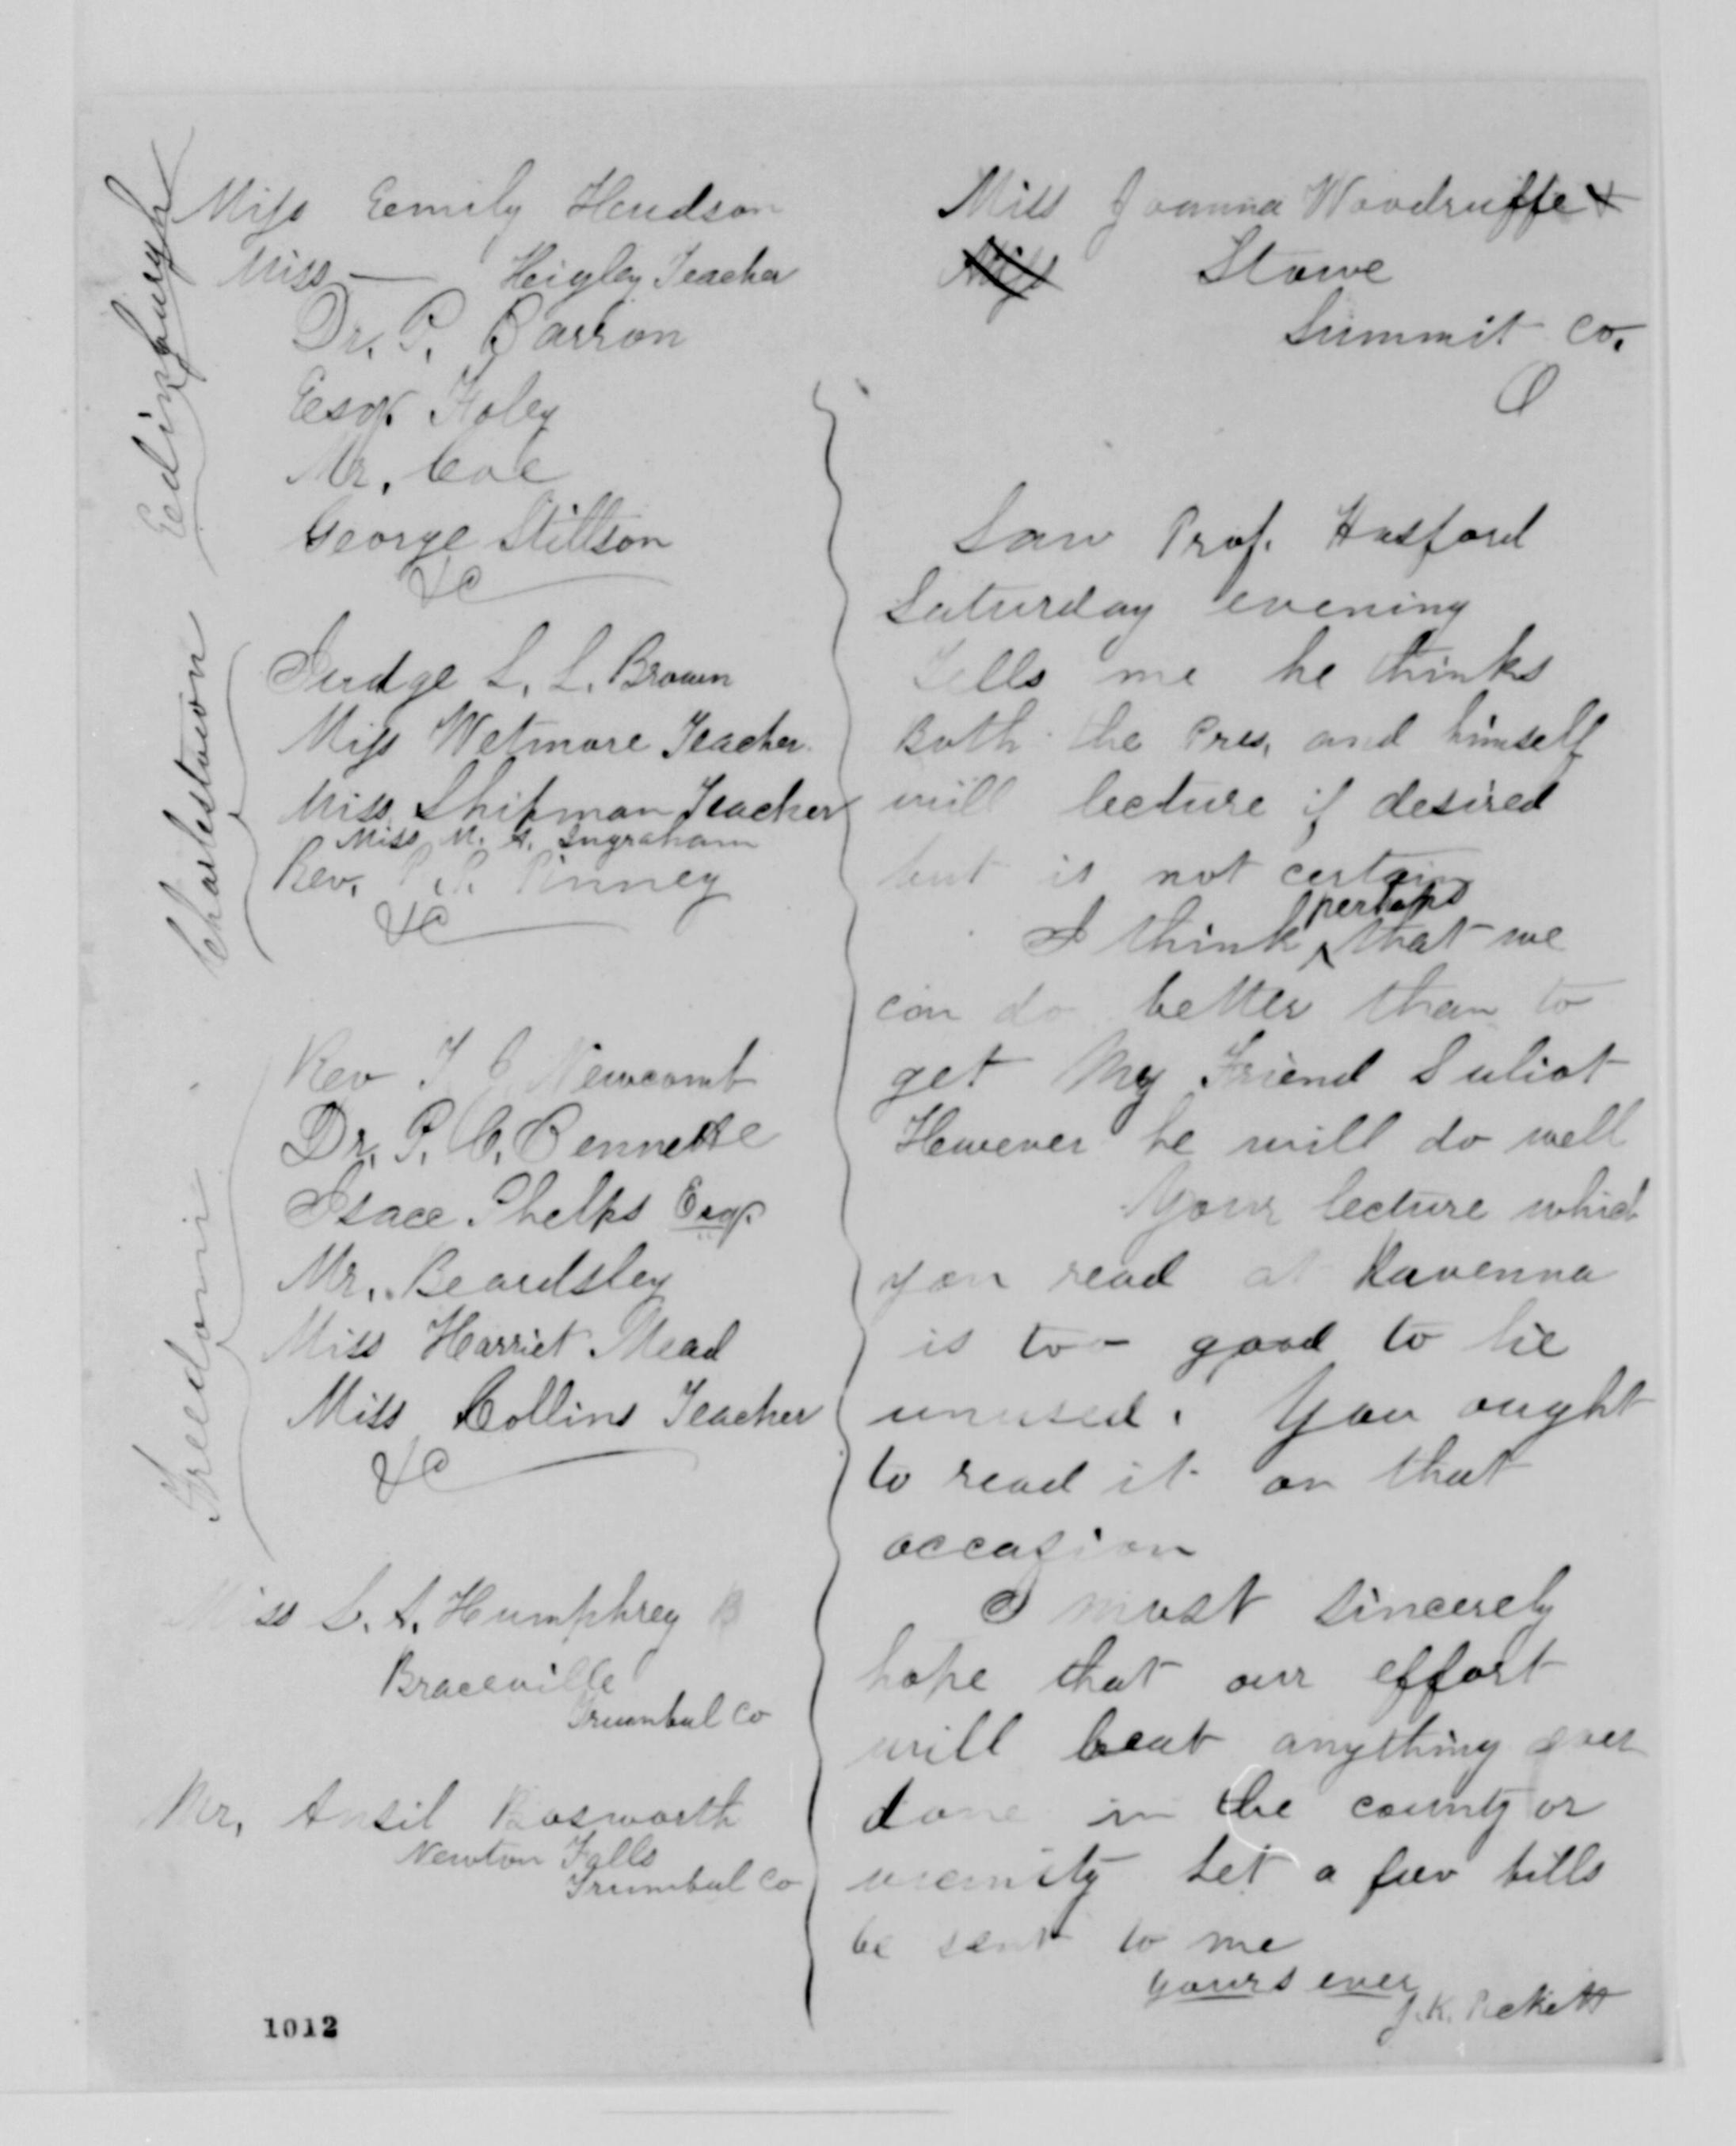 Eedinburgh
Miss Eemily Hudson
Miss — Heigley Teacher
Dr. P. Barron
Eesqr. Foley
Mr. Coe
George Stillson
&c
Charlestown
Judge L. L. Brown
Miss Wetmore Teacher.
Miss Shipman Teacher
Miss M. A. Ingraham
Rev. Pinney
&c
Freedom
Rev Newcomb
Dr. P. C. Bennette
Isace Phelps Esqr.
Mr. Beardsley
Miss Harriet Mead
Miss Collins Teacher
&c
Miss L. A. Humphrey
Braceville
Trumbul Co
Mr. Ansil Bosworth
Newton Falls
Trumbul Co
1012
Miss Joanna Woodruffe +
Miss Stowe
Summit Co.
O
Saw Prof. Hasford
Saturday evening
Tells me he thinks
Both the Pres. and himself
will lecture if desired
but is not certain
perhaps
I think ^ that we
can do better than to
get My Friend Suliot
However he will do well
Your lecture which
you read at Ravenna
is too good to lie
unused. You ought
to read it on that
occasion
I most sincerely
hope that our effort
will beat anything ever
done in the county or
vicinity Let a few bills
be sent to me
Yours ever
J. K. Pickett